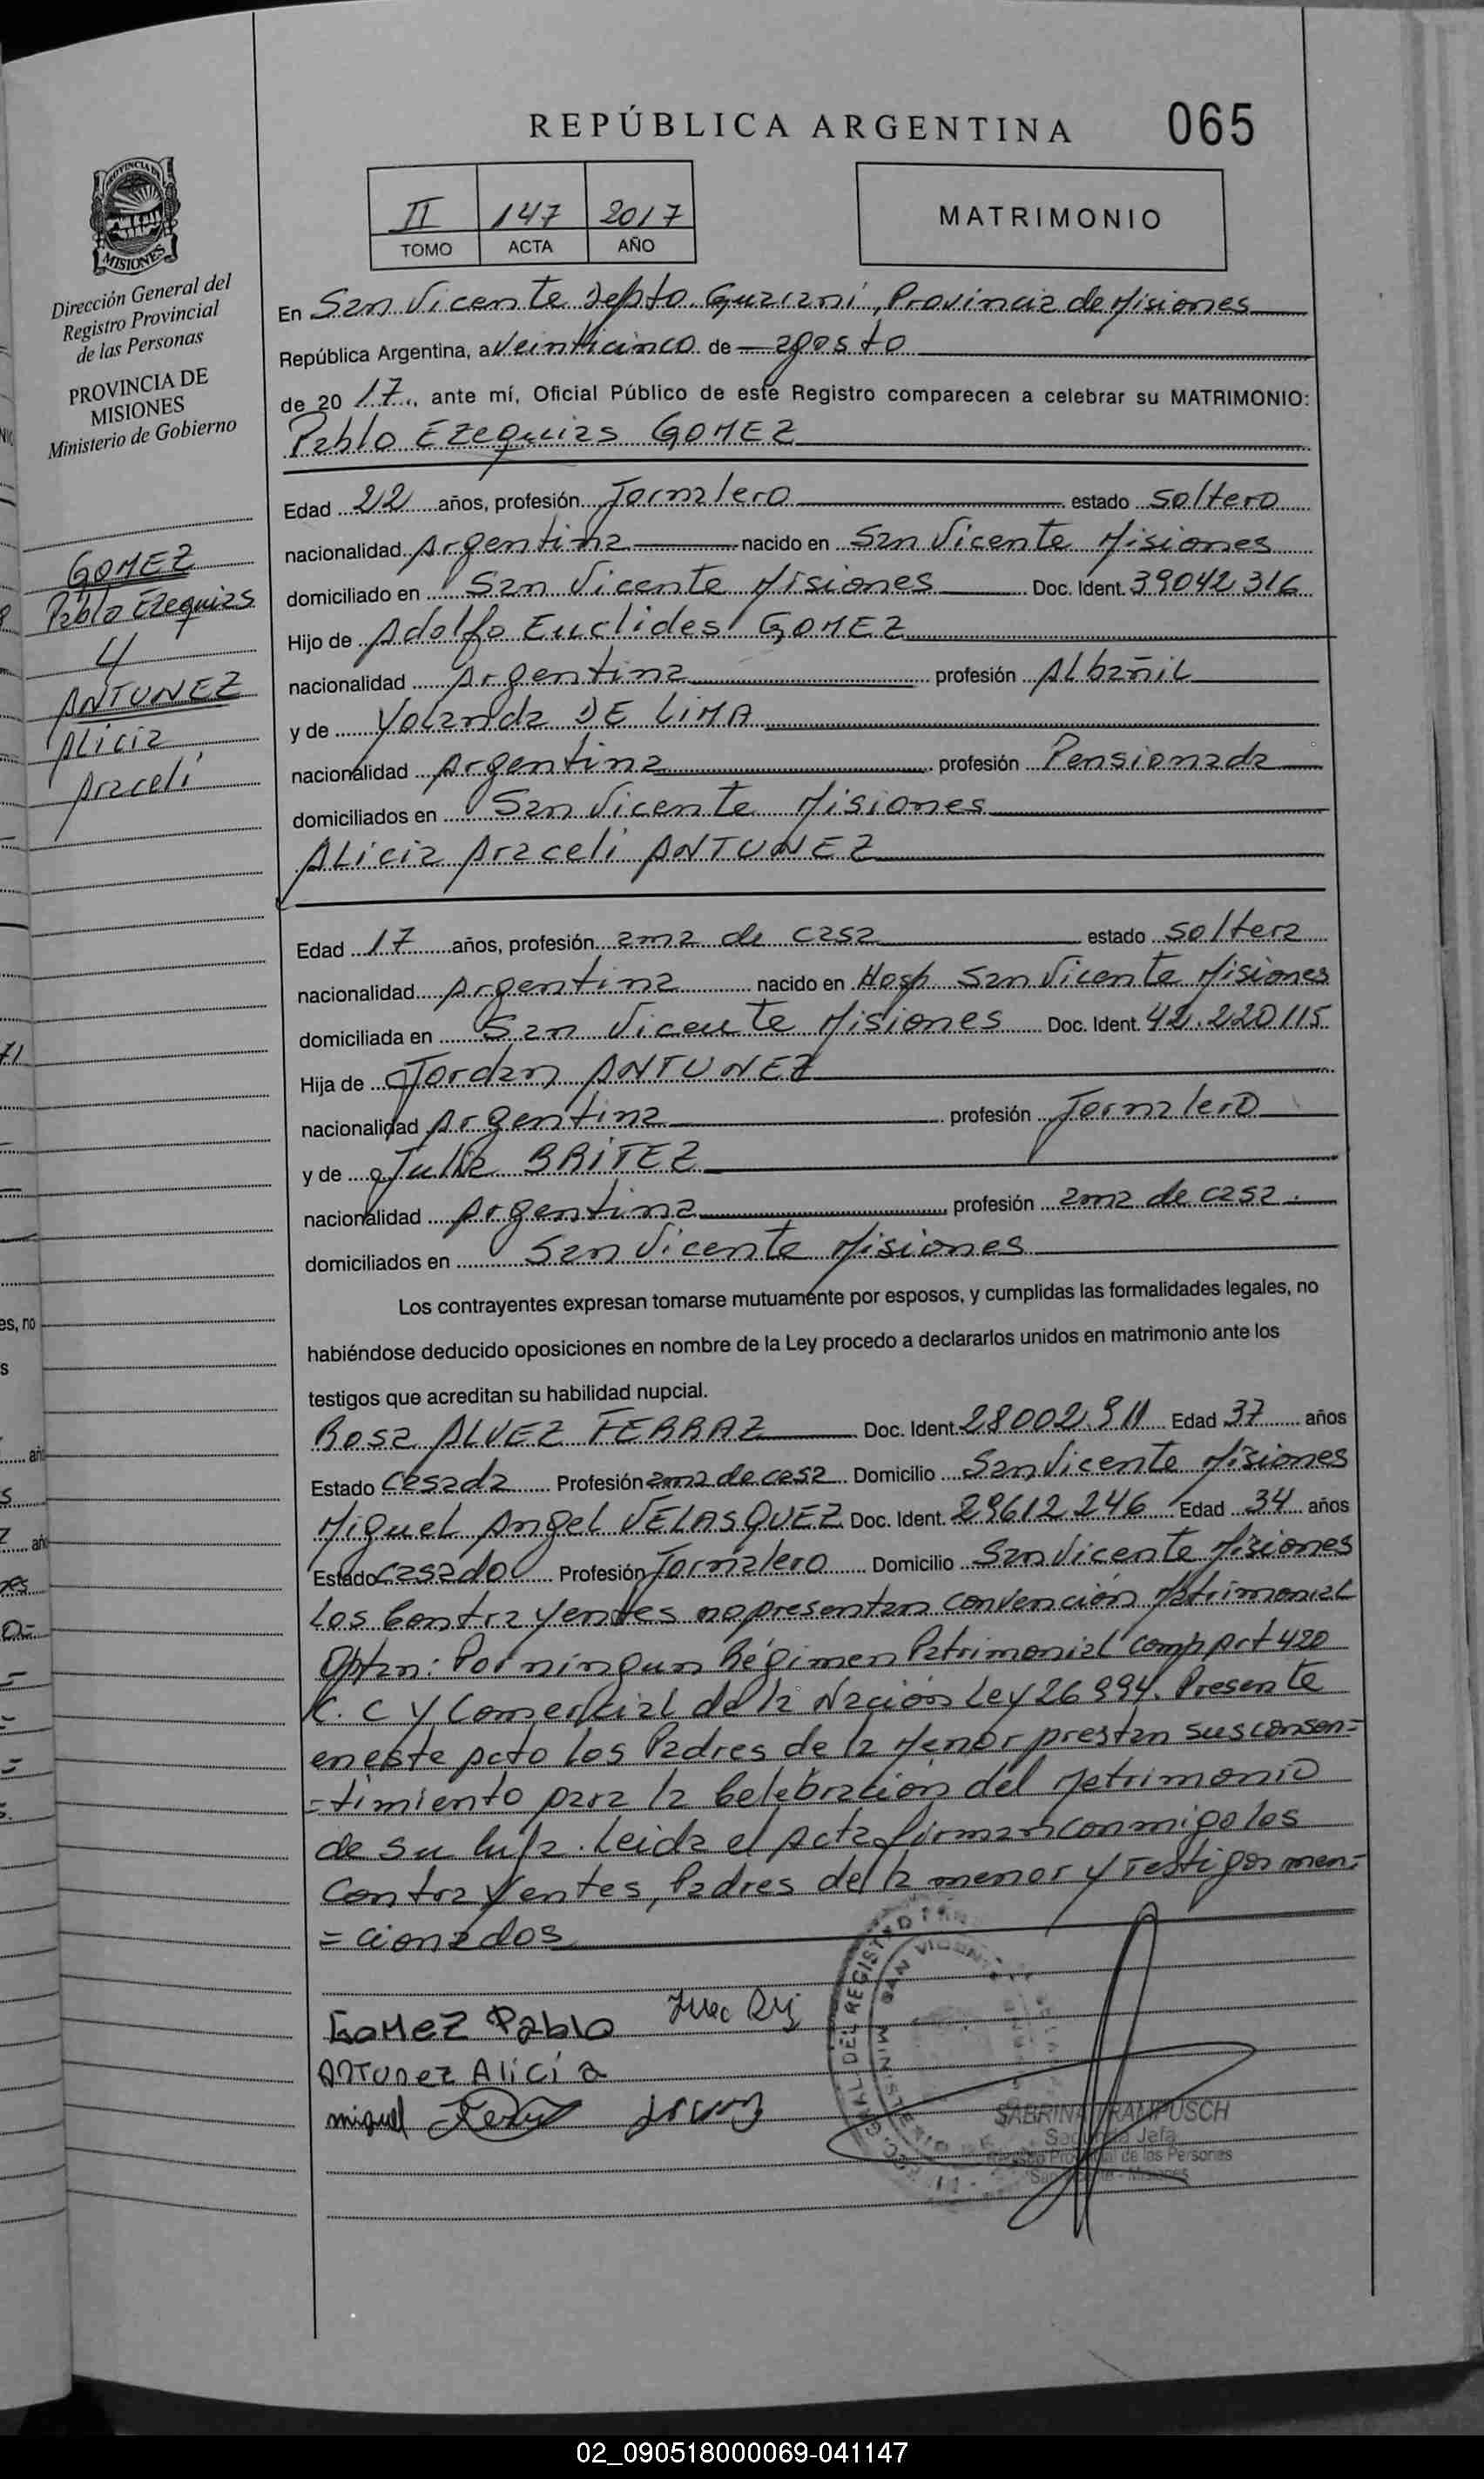 REPÚBLICA ARGENTINA 065
II 147 2017
TOMO ACTA AÑO
MATRIMONIO
PROVINCIA DE MISIONES
Dirección General del
Registro Provincial
de las Personas
PROVINCIA DE
MISIONES
Ministerio de Gobierno
GOMEZ
Pablo Ezequias
y
ANTUNEZ
Alicia
Araceli
En San Vicente Depto Guarani, Provincia de Misiones
República Argentina, a veinticinco de agosto
de 20 17, ante mí, Oficial Público de este Registro comparecen a celebrar su MATRIMONIO:
Pablo Ezequias GOMEZ
Edad 22 años, profesión Jornalero estado soltero
nacionalidad Argentina nacido en San Vicente Misiones
domiciliado en San Vicente Misiones Doc. Ident. 39042316
Hijo de Adolfo Euclides GOMEZ
nacionalidad Argentina profesión Albañil
y de Yolanda DE LIMA
nacionalidad Argentina profesión Pensionada
domiciliados en San Vicente Misiones
Alicia Araceli ANTUNEZ
Edad 17 años, profesión ama de casa estado soltera
nacionalidad Argentina nacido en Hosp San Vicente Misiones
domiciliada en San Vicente Misiones Doc. Ident. 42.220115
Hija de Jordan ANTUNEZ
nacionalidad Argentina profesión Jornalero
y de Julia BRITEZ
nacionalidad Argentina profesión ama de casa.
domiciliados en San Vicente Misiones
Los contrayentes expresan tomarse mutuamente por esposos, y cumplidas las formalidades legales, no
habiéndose deducido oposiciones en nombre de la Ley procedo a declararlos unidos en matrimonio ante los
testigos que acreditan su habilidad nupcial.
Rosa ALVEZ FERRAZ Doc. Ident. 28002.911 Edad 37 años
Estado Casada Profesión ama de casa Domicilio San Vicente Misiones
Miguel Angel VELASQUEZ Doc. Ident. 29612246 Edad 34 años
Estado casado Profesión Jornalero Domicilio San Vicente Misiones
Los Contrayentes no presentan convención Matrimonial
Optan: Por ningun Régimen Patrimonial comp Art 420
C. C y Comercial de la Nación Ley 26994. Presente
en este Acto los Padres de la Menor prestan sus consen=
=timiento para la Celebración del Matrimonio
de su hija. Leida el Acta firman conmigo los
Contrayentes, Padres de la menor y Testigos men=
=cionados
GOMEZ Pablo
ANTUNEZ Alicia
miguel
SAN VICENTE
SABRINA TRAMPUSCH
Segunda Jefa
Registro Provincial de las Personas
San Vicente - Misiones
02_090518000069-041147